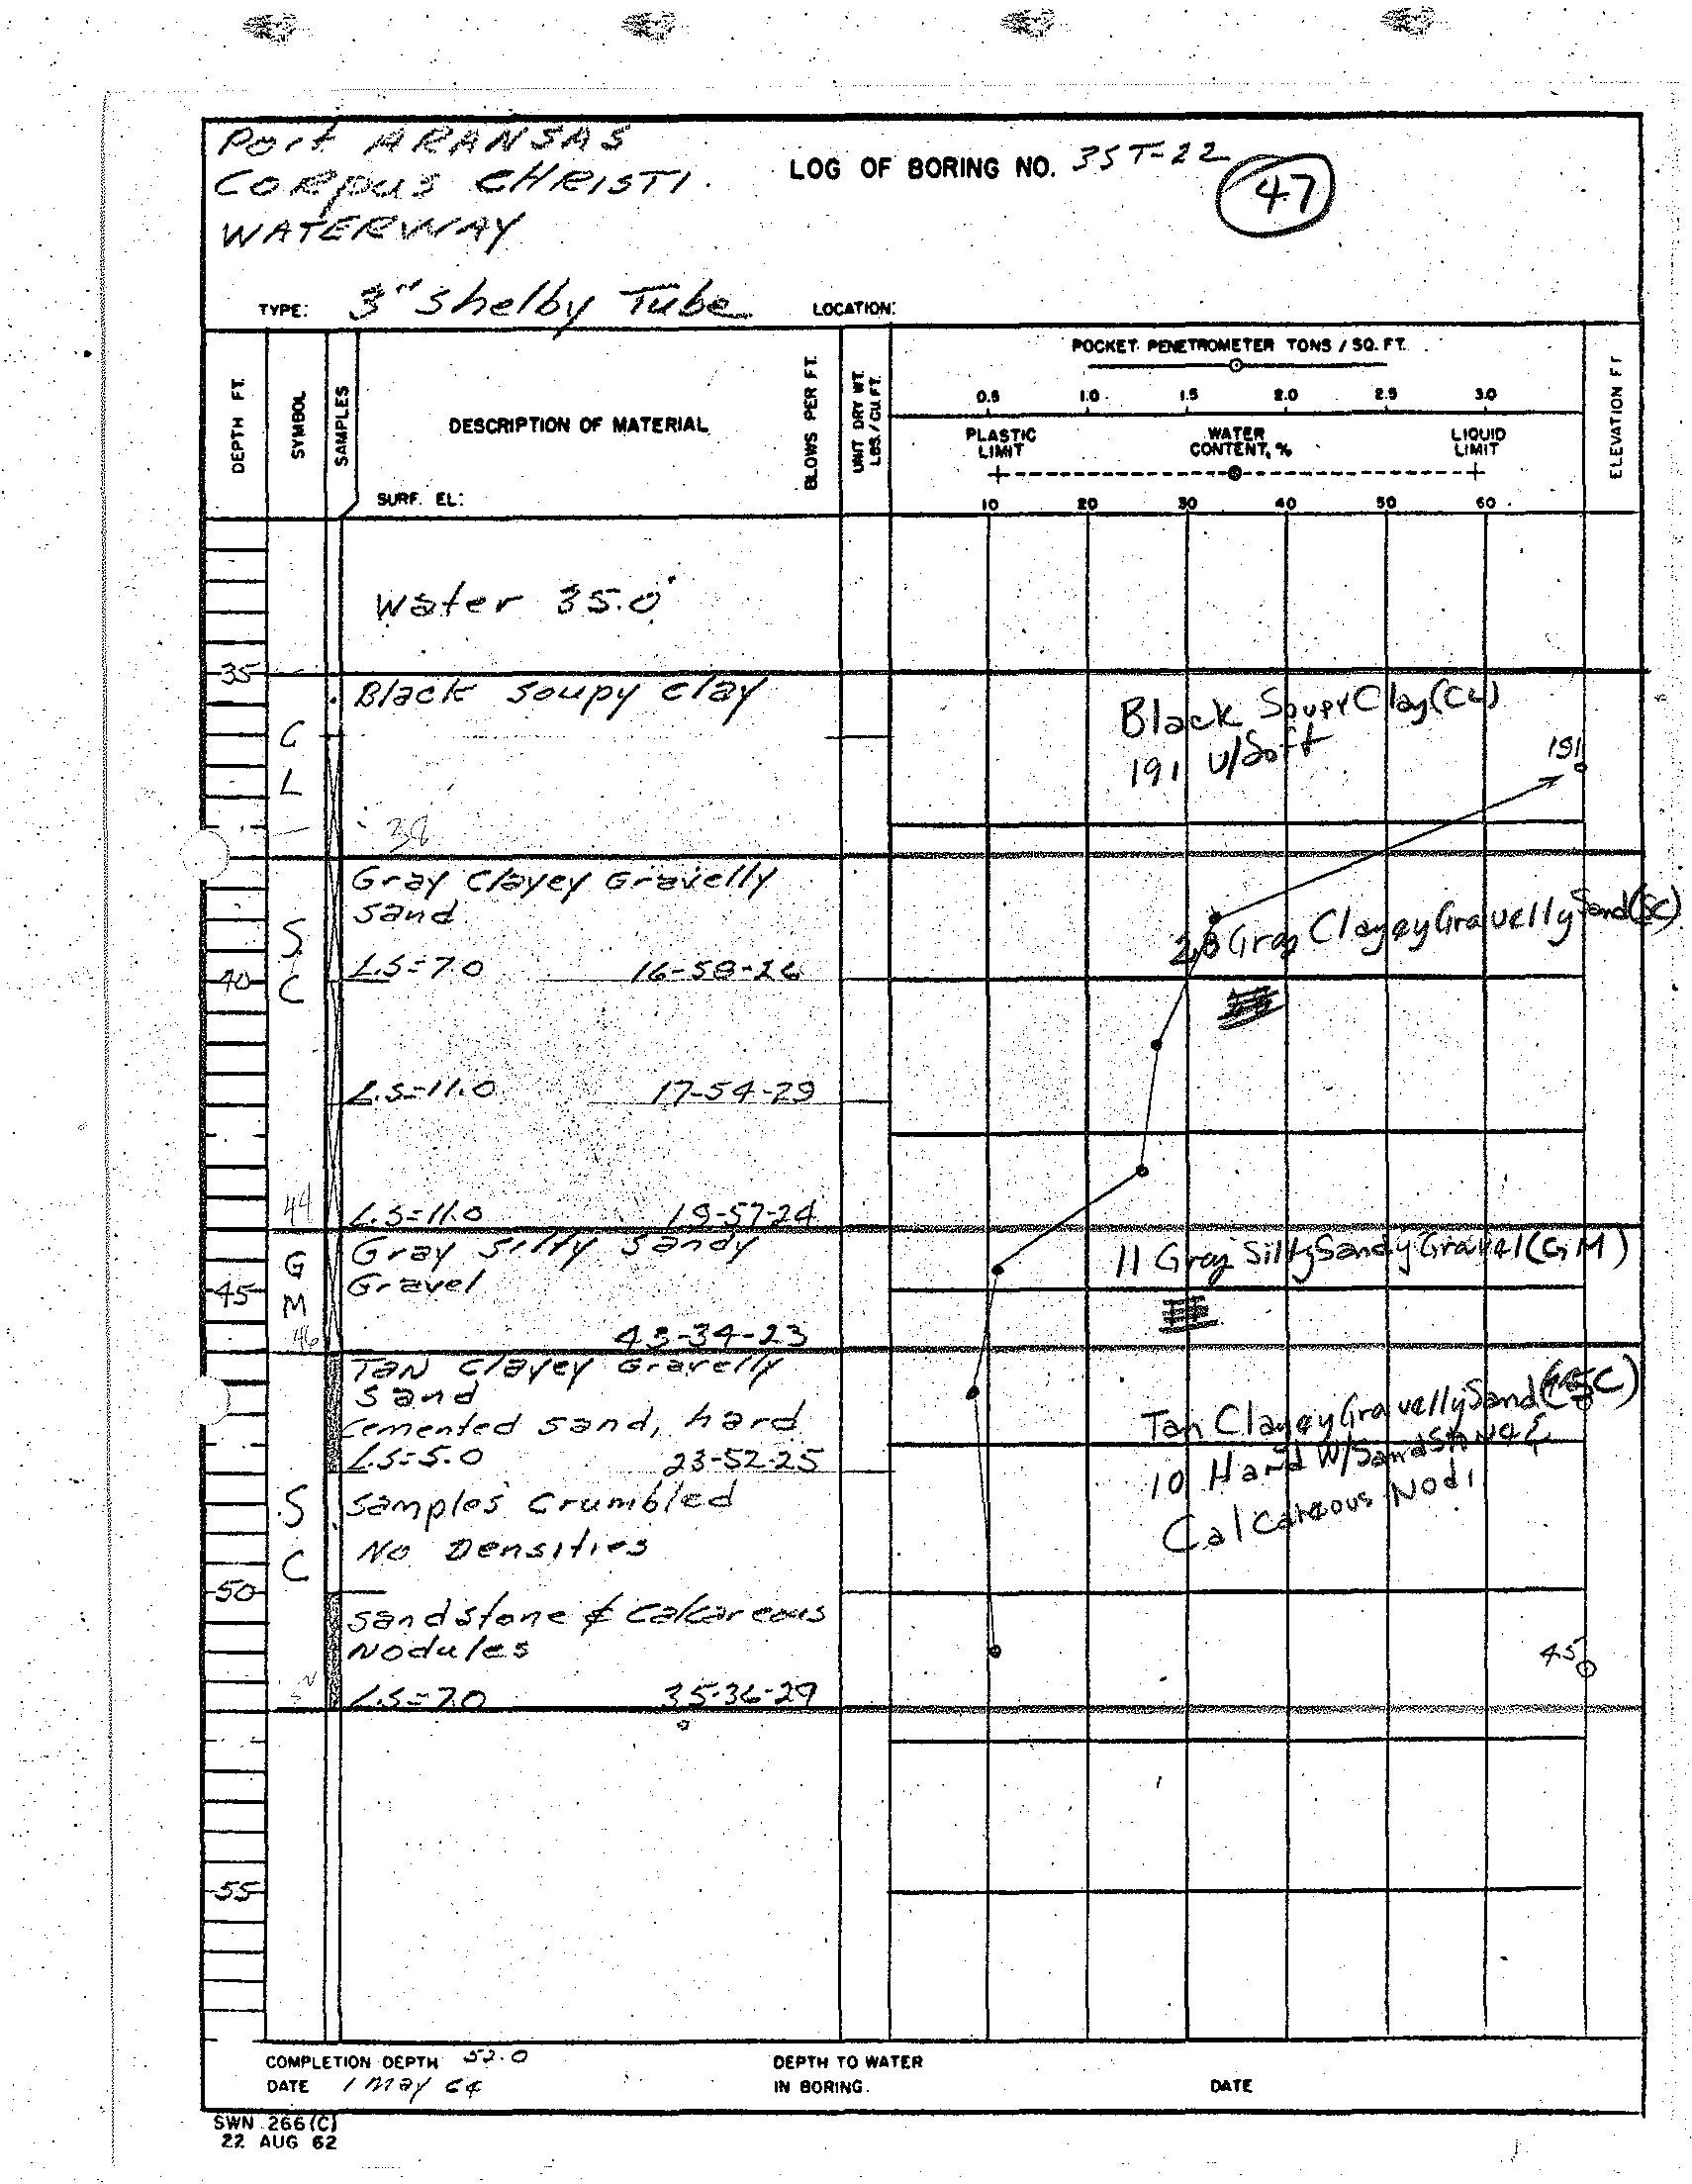 Port ARANSAS
CORPUS CHRISTI.
WATERWAY
LOG OF BORING NO. 3ST-22
47
TYPE: 3" Shelby Tube
LOCATION:
DEPTH FT.
SYMBOL
SAMPLES
DESCRIPTION OF MATERIAL
SURF. EL:
BLOWS PER FT.
UNIT DRY WT.
LBS./CU.FT.
POCKET PENETROMETER TONS / SQ. FT.
0.5 1.0 1.5 2.0 2.5 3.0
PLASTIC LIMIT
WATER CONTENT, %
LIQUID LIMIT
10 20 30 40 50 60
ELEVATION FT
Water 35.0'
35
Black soupy clay
C
L
38
Black Soupy Clay (CL)
191 v/Soft
191
Gray Clayey Gravelly
Sand
S
C
28 Gray Clayey Gravelly Sand (SC)
40
L.S=7.0 16-58-26
L.S=11.0 17-54-29
44
L.S=11.0 19-57-24
Gray silty sandy
Gravel
G
M
11 Gray Silty Sandy Gravel (GM)
45
46
43-34-23
TAN Clayey Gravelly
Sand
Cemented sand, hard
L.S=5.0 23-52-25
Tan Clayey Gravelly Sand (SC)
10 Hard W/Sandstone &
Calcareous Nod.
S
C
Samples Crumbled
No Densities
50
sandstone & Calcareous
Nodules
45
L.S=7.0 35-36-29
55
COMPLETION DEPTH 52.0
DATE 1 May 64
DEPTH TO WATER
IN BORING.
DATE
SWN 266 (C)
22 AUG 62